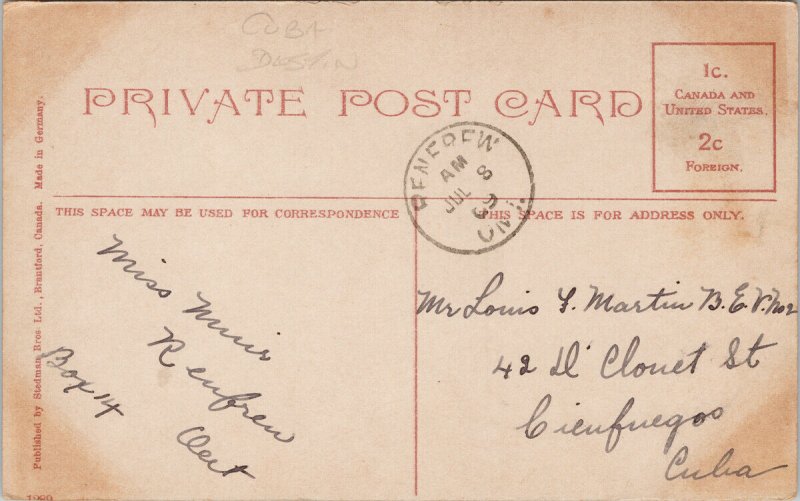 CUBA
DUSTIN
PRIVATE POST CARD
1c.
CANADA AND
UNITED STATES.
2c
FOREIGN.
RENFREW
AM
JUL 8
09
ONT.
THIS SPACE MAY BE USED FOR CORRESPONDENCE
THIS SPACE IS FOR ADDRESS ONLY.
Miss Muir
Renfrew
Ont
Box 14
Mr Louis F. Martin B.E.V. No2
42 D' Clouet St
Cienfuegos
Cuba
Published by Stedman Bros Ltd., Brantford, Canada. Made in Germany.